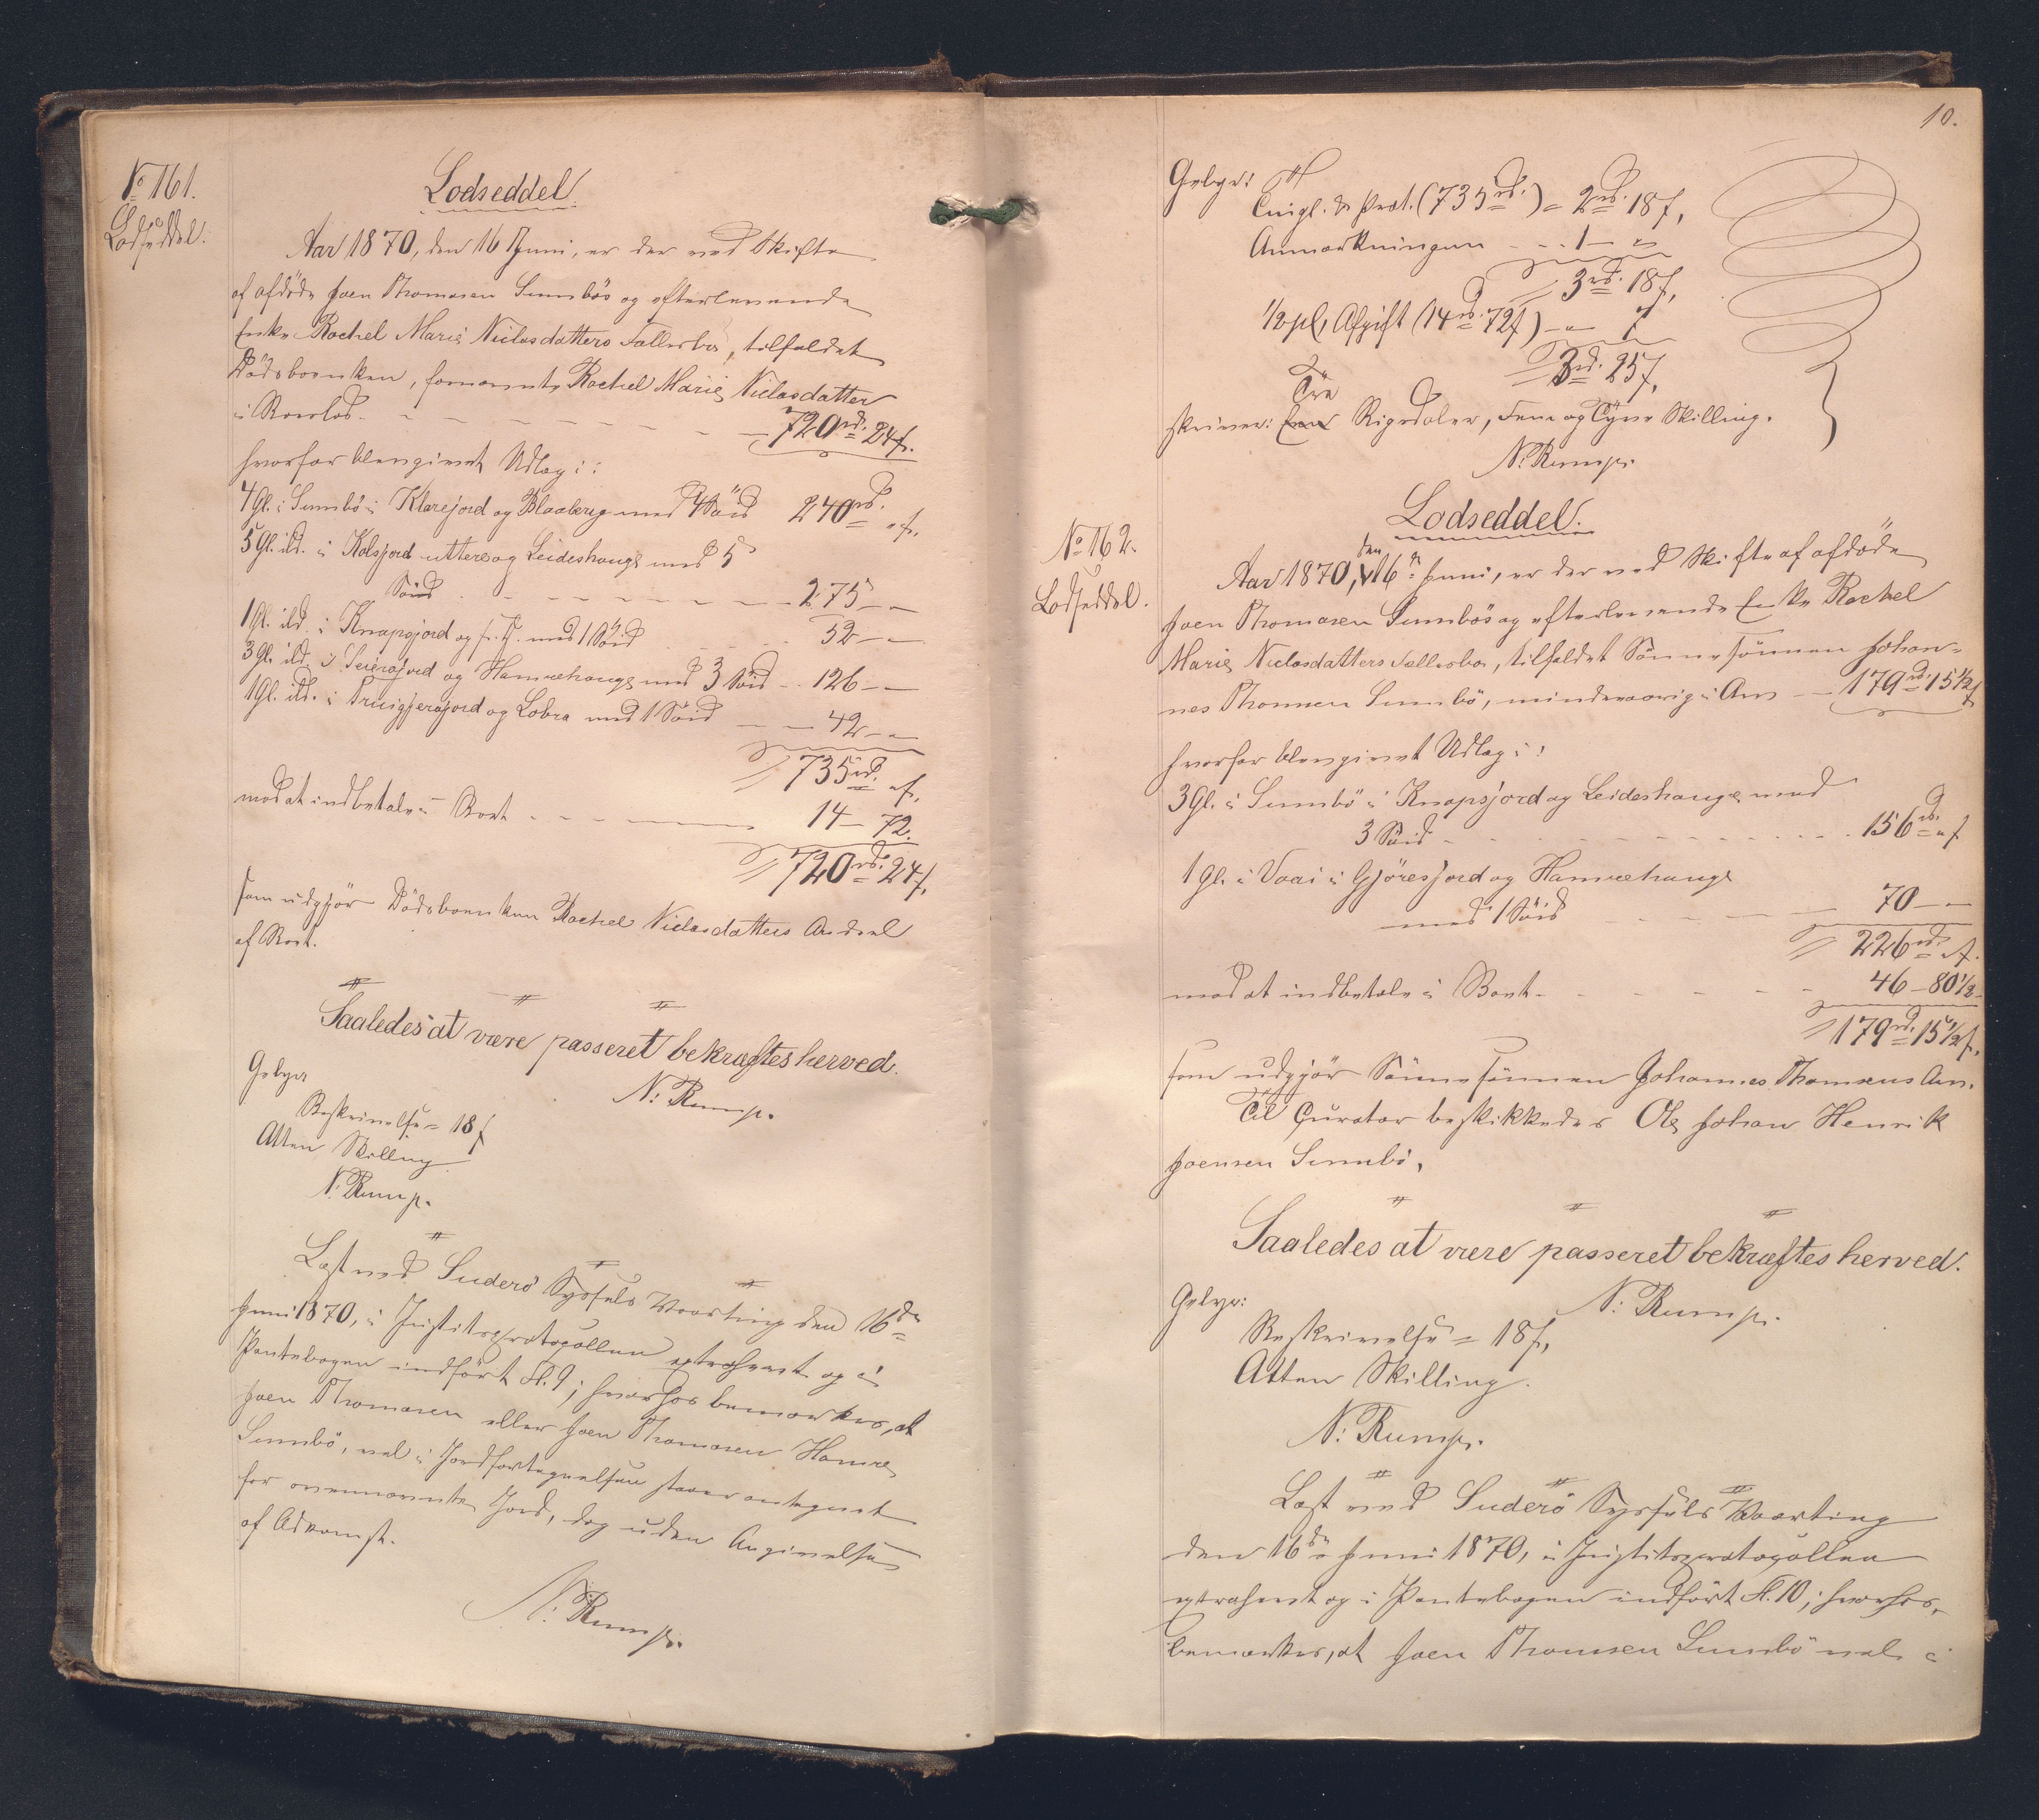 No 161.
Lodseddel.
Lodseddel.
Aar 1870, den 16 Juni, er der ved Skifte
af afdøde Joen Thomasen Sumbös og efterlevende
Enke Rachel Marie Niclasdatters Fællesbo, tilfaldet
Dödsboenken, fornævnte Rachel Marie Niclasdatter
i Boeslod - - - 720 rd. 24 s.
hvorfor blev givet Udlæg i:
4 Gl. i Sumbö i Klarejord og Blaaberg med 4 Söid 240 rd. " s.
5 Gl. ibd. i Kolsjord uttere og Leideshauge med 5
Söid - - - 275 - "
1 Gl. ibd. i Knapsjord og s. St. med 1 Söid 52 - "
3 Gl. ibd. i Seierajord og Hamrehauge med 3 Söid - 126 - "
1 Gl. ibd. i Pruigjerajord og Lobra med 1 Söid - 42 - "
735 rd. " s.
mod at indbetale i Boet - - - 14 - 72.
720 rd. 24 s.
som udgjör Dödsboenken Rachel Niclasdatters Andeel
af Boet.
Saaledes at være passeret bekræftes herved.
N: Rump.
Gebyr
Beskrivelse = 18 s
Atten Skilling
N: Rump.
Læst ved Suderö Syssels Vaarting den 16de
Juni 1870, i Justitsprotocollen extraheret og i
Pantebogen indfört Fl. 9; hvorhos bemærkes, at
Joen Thomasen eller Joen Thomasen Hamre
Sumbö, vel i Jordfortegnelsen staaer antegnet
for ovennævnte Jord, dog uden Angivelse
af Adkomst.
N: Rump.
10.
Gebyr:
Tingl. & Prot. (735 rd.) = 2 rd. 18 s,
Anmærkningen - - 1 - "
3 rd. 18 s,
1/2 pCt. Afgift (14 rd. 72 s) - " 7
3 rd. 25 s,
Tre
skriver: Rigsdaler, Fem og Tyve Skilling.
N: Rump.
No 162.
Lodseddel.
Lodseddel.
den
Aar 1870, 16de Juni, er der ved Skifte af afdøde
Joen Thomasen Sumbös og efterlevende Enke Rachel
Marie Niclasdatters Fællesbo, tilfaldet Sönnesönnen Johan-
nes Thomsen Sumbö, mindreaarig i Arv - 179 rd. 15 1/2 s
hvorfor blev givet Udlæg i:
3 Gl. i Sumbö i Knapsjord og Leideshauge med
3 Söid - - - 156 rd. " s
1 Gl. i Vaai i Gjöresjord og Hamrehauge
med 1 Söid - - - 70 - "
226 rd. " s.
mod at indbetale i Boet - - - 46 - 80 1/2 -
179 rd. 15 1/2 s.
som udgjör Sönnesönnen Johannes Thomsens Arv.
Til Curator beskikkedes Ole Johan Henrik
Joensen Sumbö.
Saaledes at være passeret bekræftes herved.
N: Rump.
Gebyr:
Beskrivelse = 18 s,
Atten Skilling.
N: Rump.
Læst ved Suderö Syssels Vaarting
den 16de Juni 1870, i Justitsprotocollen
extraheret og i Pantebogen indfört Fl. 10; hvorhos
bemærkes, at Joen Thomsen Sumbö vel i